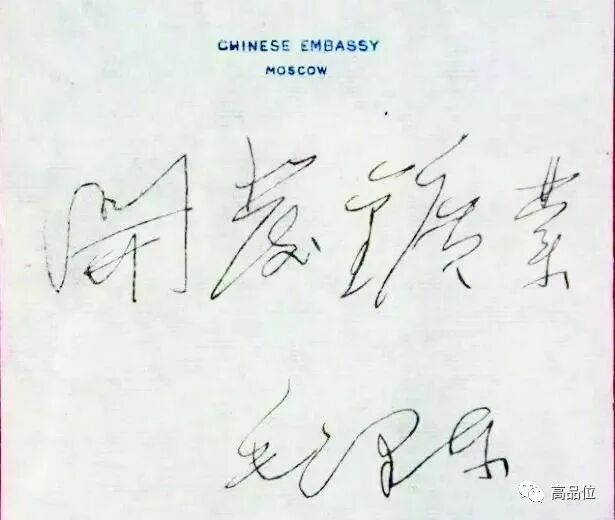 CHINESE EMBASSY
MOSCOW
開發鑛業
毛澤东
高品位